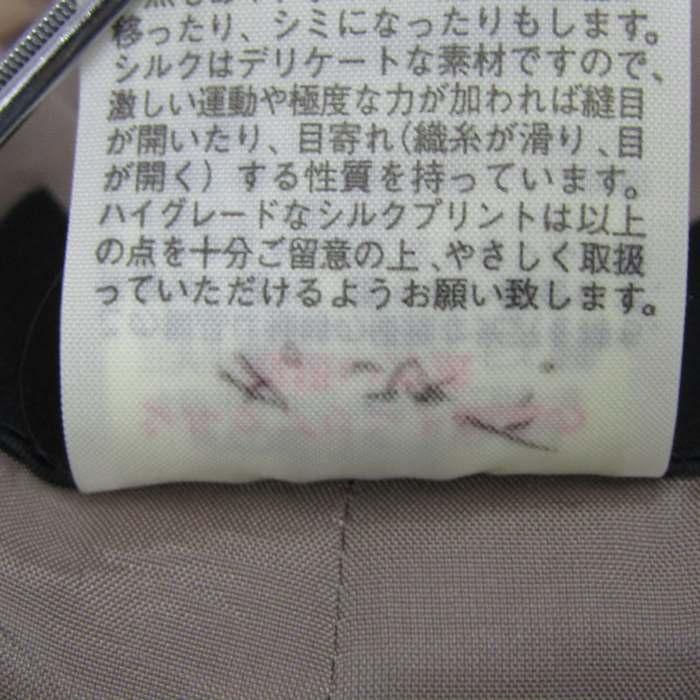 移ったり、シミになったりもします。
シルクはデリケートな素材ですので、
激しい運動や極度な力が加われば縫目
が開いたり、目寄れ(織糸が滑り、目
が開く)する性質を持っています。
ハイグレードなシルクプリントは以上
の点を十分ご留意の上、やさしく取扱
っていただけるようお願い致します。